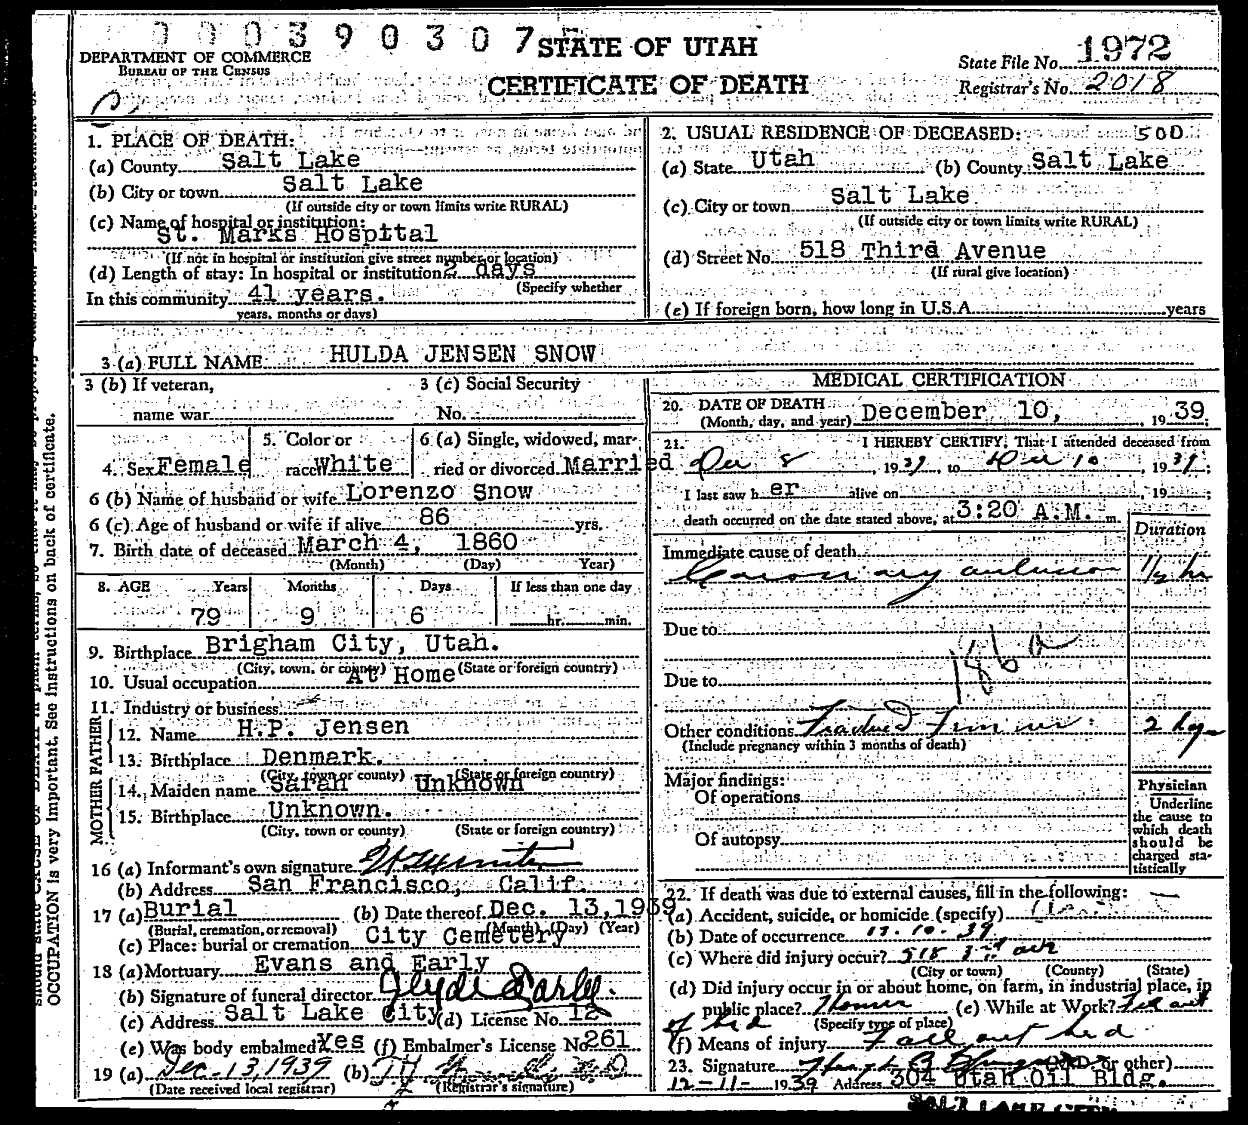 0 0 0 3 9 0 3 0 7
STATE OF UTAH
CERTIFICATE OF DEATH
DEPARTMENT OF COMMERCE
BUREAU OF THE CENSUS
State File No. 1972
Registrar's No. 2018
1. PLACE OF DEATH:
(a) County Salt Lake
(b) City or town Salt Lake
(If outside city or town limits write RURAL)
(c) Name of hospital or institution:
St. Marks Hospital
(If not in hospital or institution give street number or location)
(d) Length of stay: In hospital or institution 2 days
(Specify whether
In this community 41 years.
years, months or days)
2. USUAL RESIDENCE OF DECEASED: 500
(a) State Utah (b) County Salt Lake
(c) City or town Salt Lake.
(If outside city or town limits write RURAL)
(d) Street No. 518 Third Avenue
(If rural give location)
(e) If foreign born, how long in U.S.A. years
3 (a) FULL NAME HULDA JENSEN SNOW
3 (b) If veteran,
name war
3 (c) Social Security
No.
4. Sex Female
5. Color or
race White
6 (a) Single, widowed, mar-
ried or divorced Married
6 (b) Name of husband or wife Lorenzo Snow
6 (c) Age of husband or wife if alive 86 yrs.
7. Birth date of deceased March 4, 1860
(Month) (Day) Year)
8. AGE Years Months Days If less than one day
79 9 6 hr. min.
9. Birthplace Brigham City, Utah.
(City, town, or county) (State or foreign country)
10. Usual occupation At Home
11. Industry or business
FATHER
12. Name H.P. Jensen
13. Birthplace Denmark.
(City, town or county) (State or foreign country)
MOTHER
14. Maiden name Sarah Unknown
15. Birthplace Unknown.
(City, town or county) (State or foreign country)
16 (a) Informant's own signature
(b) Address San Francisco, Calif.
17 (a) Burial (b) Date thereof Dec. 13, 1939
(Burial, cremation, or removal) (Month) (Day) (Year)
(c) Place: burial or cremation City Cemetery
18 (a) Mortuary Evans and Early
(b) Signature of funeral director Clyde Early.
(c) Address Salt Lake City (d) License No. 12
(e) Was body embalmed? Yes (f) Embalmer's License No. 261
19 (a) Dec-13, 1939 (b)
(Date received local registrar) (Registrar's signature)
MEDICAL CERTIFICATION
20. DATE OF DEATH
(Month, day, and year) December 10, 1939.
21. I HEREBY CERTIFY, That I attended deceased from
Dec 8, 1939, to Dec 10, 1939;
I last saw her alive on , 19 ;
death occurred on the date stated above, at 3:20 A.M. m.
Duration
Immediate cause of death
Coronary occlusion 1/2 hr
Due to
186a
Due to
Other conditions Fractured Femur 2 days
(Include pregnancy within 3 months of death)
Major findings:
Of operations
Of autopsy
Physician
Underline
the cause to
which death
should be
charged sta-
tistically
22. If death was due to external causes, fill in the following:
(a) Accident, suicide, or homicide (specify)
(b) Date of occurrence 12-10-39
(c) Where did injury occur? 518 3rd ave
(City or town) (County) (State)
(d) Did injury occur in or about home, on farm, in industrial place, in
public place? Home (e) While at Work? Fell out
of bed (Specify type of place)
(f) Means of injury Fall out bed
23. Signature or other)
12-11- 1939 Address 304 Utah Oil Bldg.
SALT LAKE CITY
OCCUPATION is very important. See instructions on back of certificate.